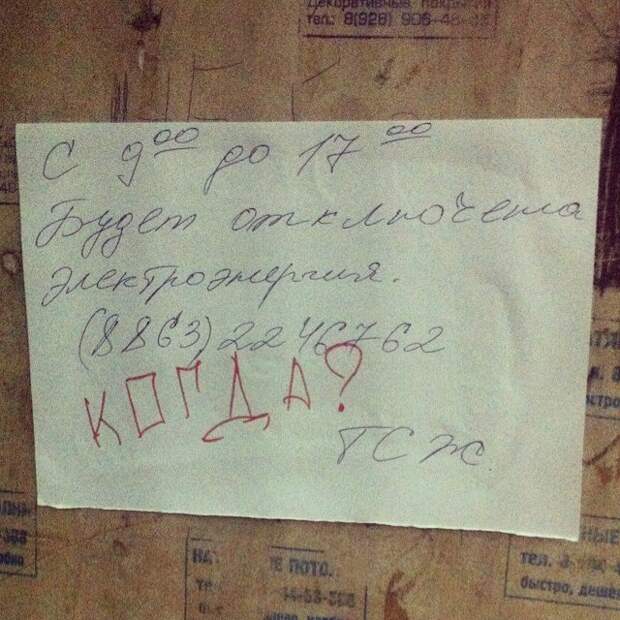 Декоративные покры
тел.: 8(928) 906-48-
С 9⁰⁰ до 17⁰⁰
Будет отключена
электроэнергия.
(8863)2246762
КОГДА?
ТСЖ
тел.
быстро, дешё